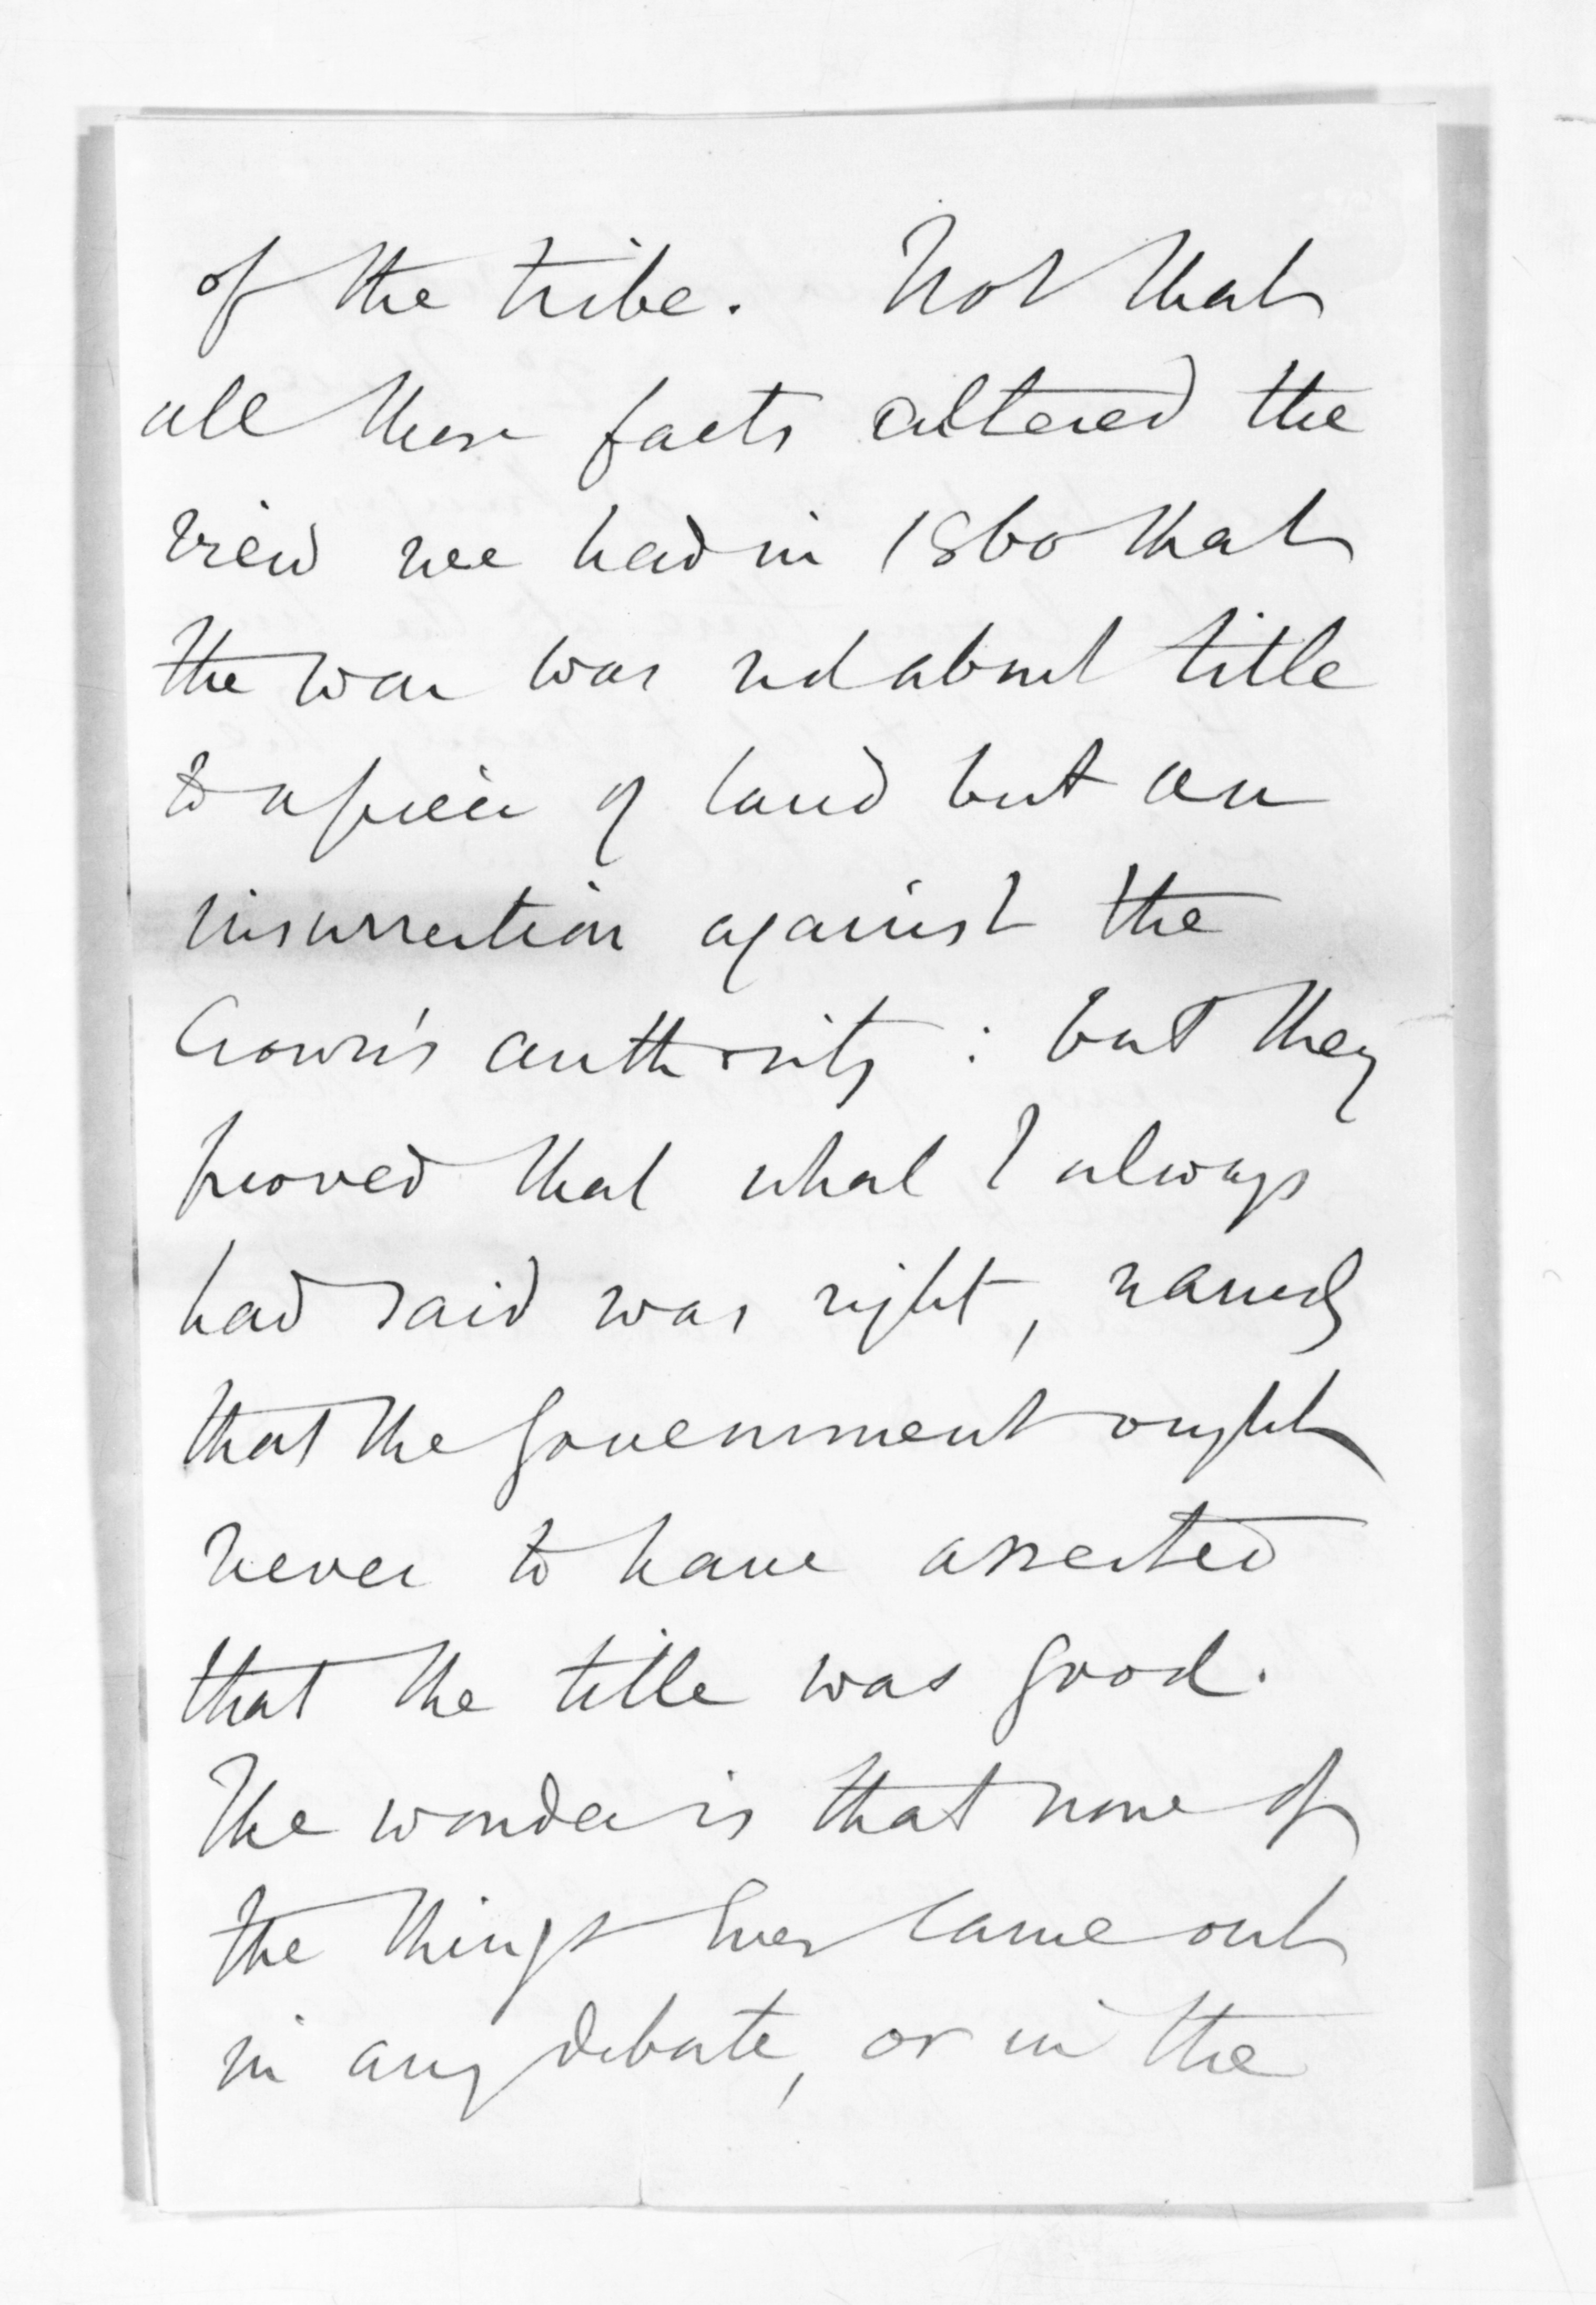 of the tribe. Not that
all these facts altered the
view we had in 1860 that
the war was not about title
to a piece of land but an
insurrection against the
Crown's authority : but they
proved that what I always
had said was right, namely
that the Government ought
never to have asserted
that the title was good.
The wonder is that none of
the things ever came out
in any debate, or in the